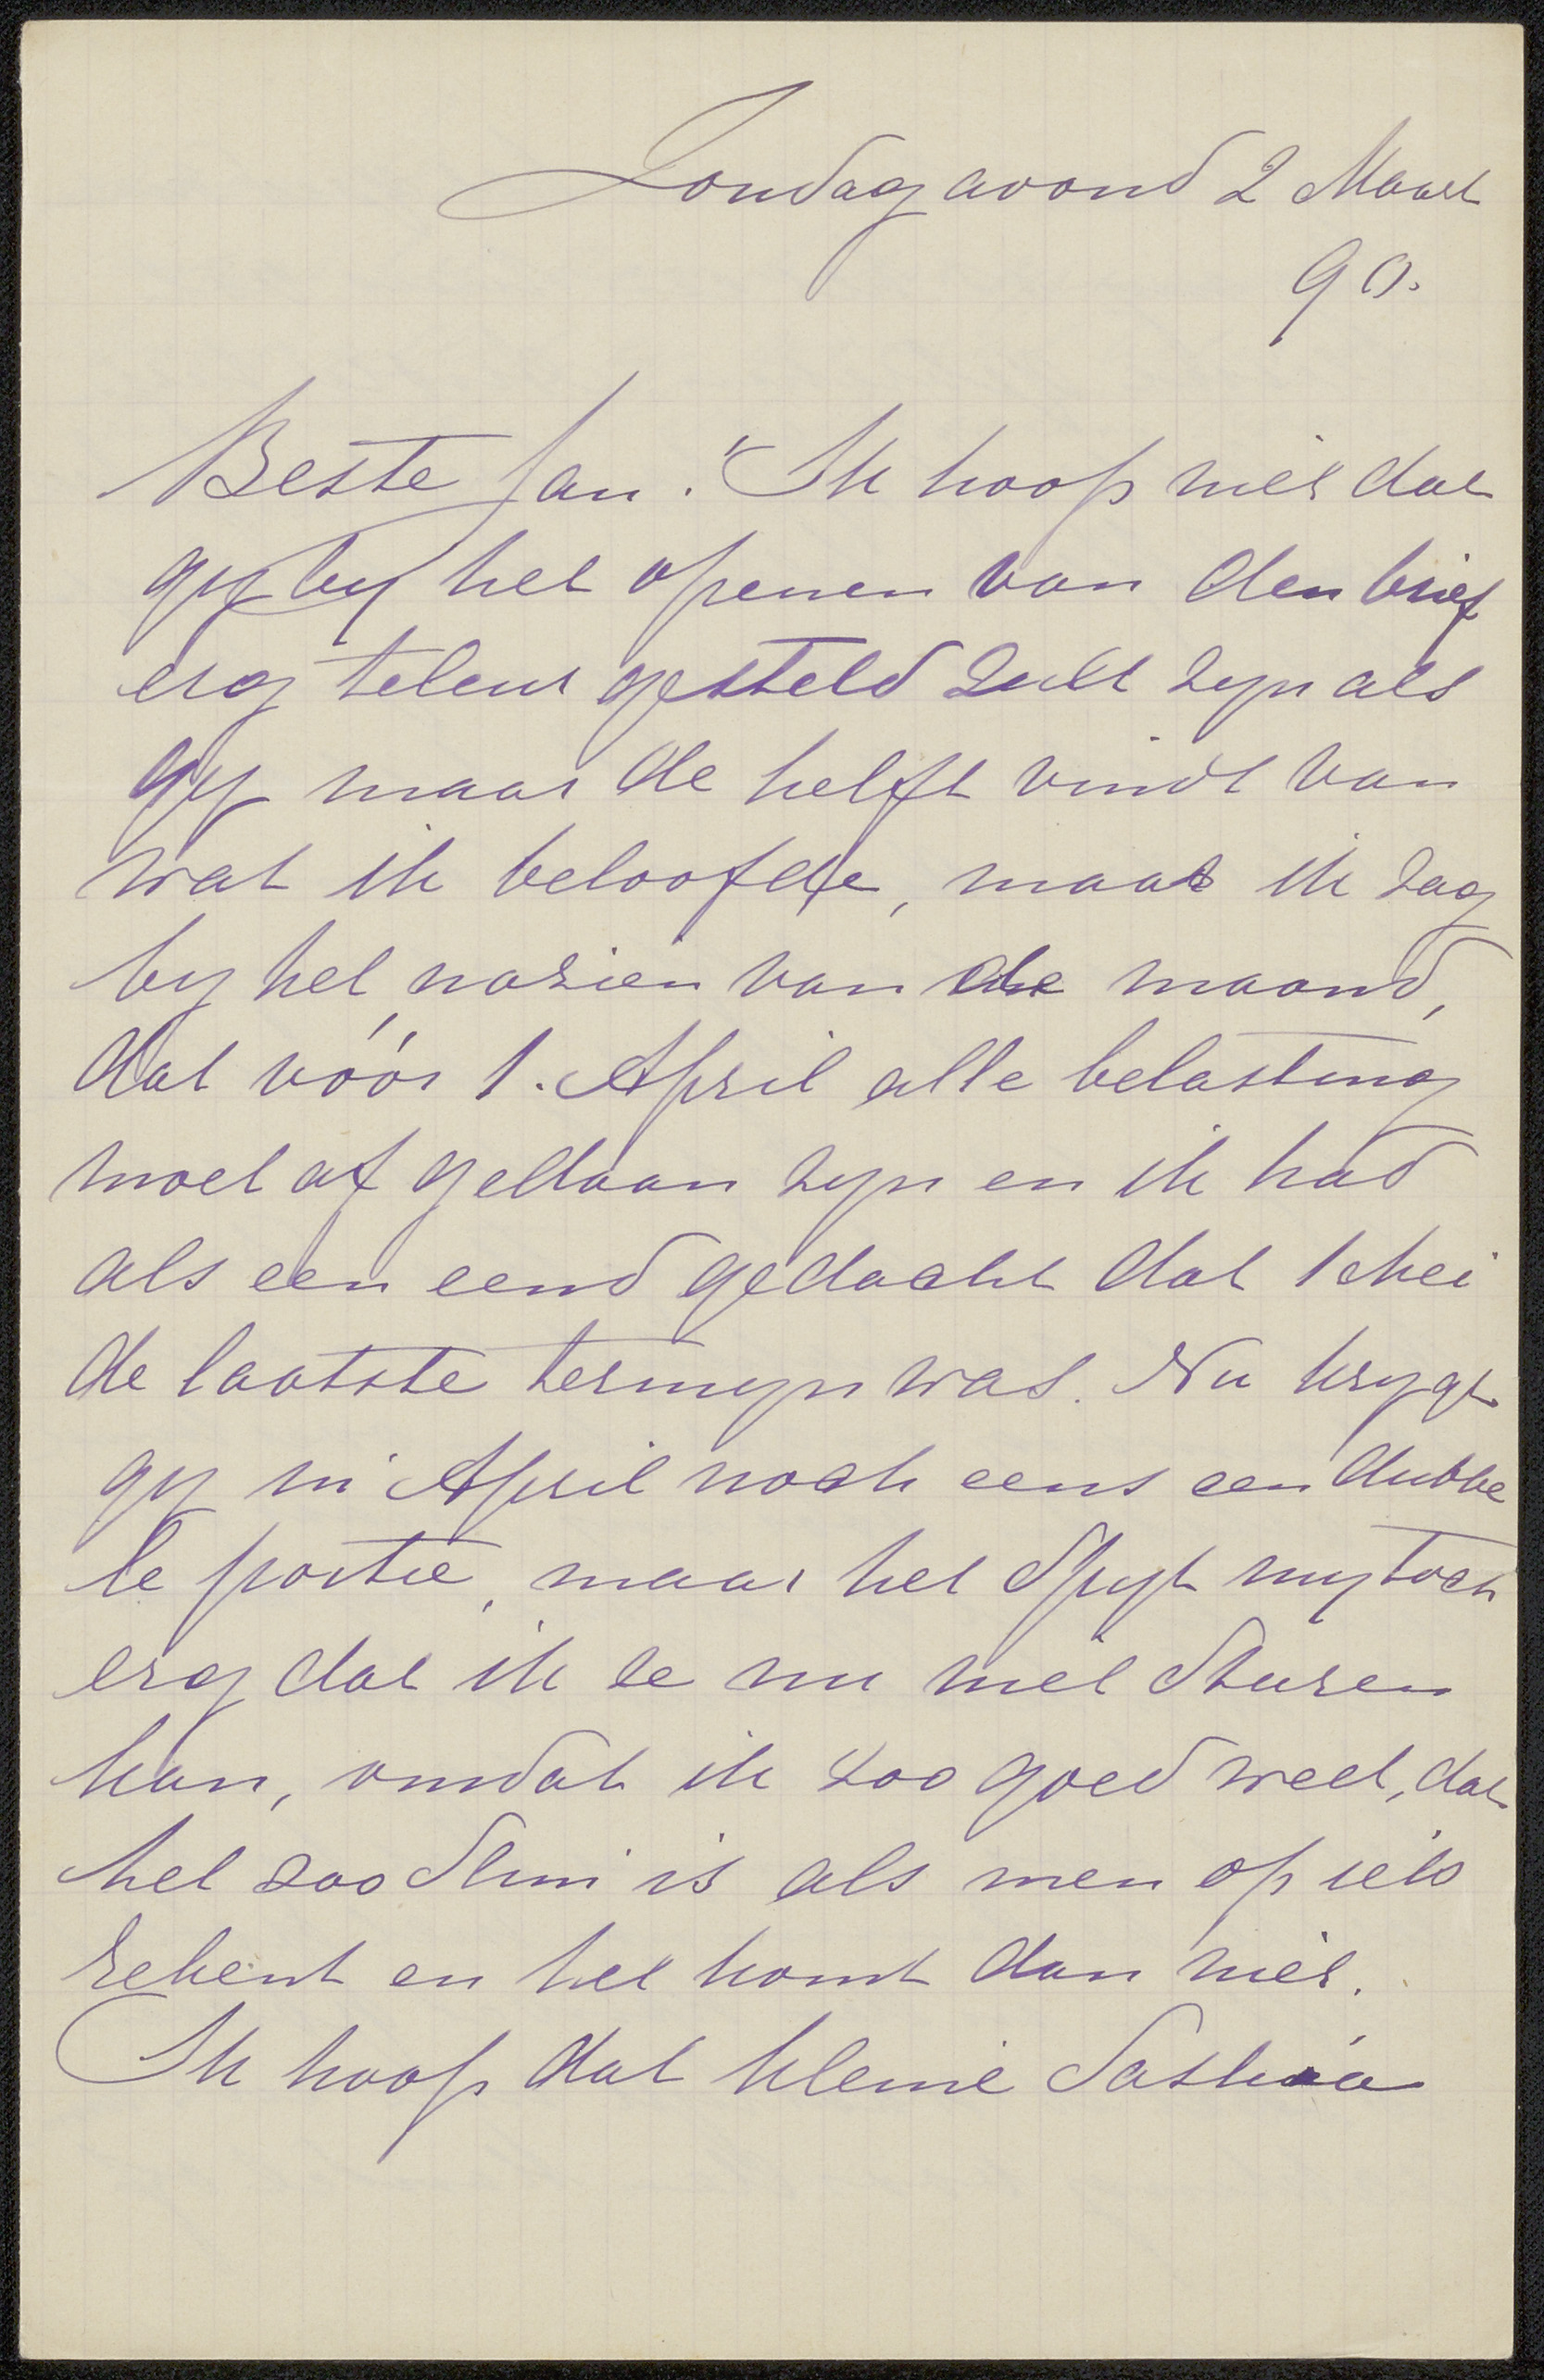 Zondag avond 2 Maart
90.
Beste Jan. Ik hoop niet dat
gy by het openen van den brief
erg teleur gesteld zult zyn als
gy maar de helft vindt van
wat ik beloofde, maar ik zag
by het nazien van de maand,
dat vóór 1. April alle belasting
moet af gedaan zyn en ik had
als een eend gedacht dat 1 Mei
de laatste termyn was. Nu krygt
gy in April noch eens een dubbe
le portie, maar het spyt my toch
erg dat ik ze nu niet sturen
kan, omdat ik zoo goed weet, dat
het zoo slim is als men op iets
rekent en het komt dan niet.
Ik hoop dat kleine Saskia